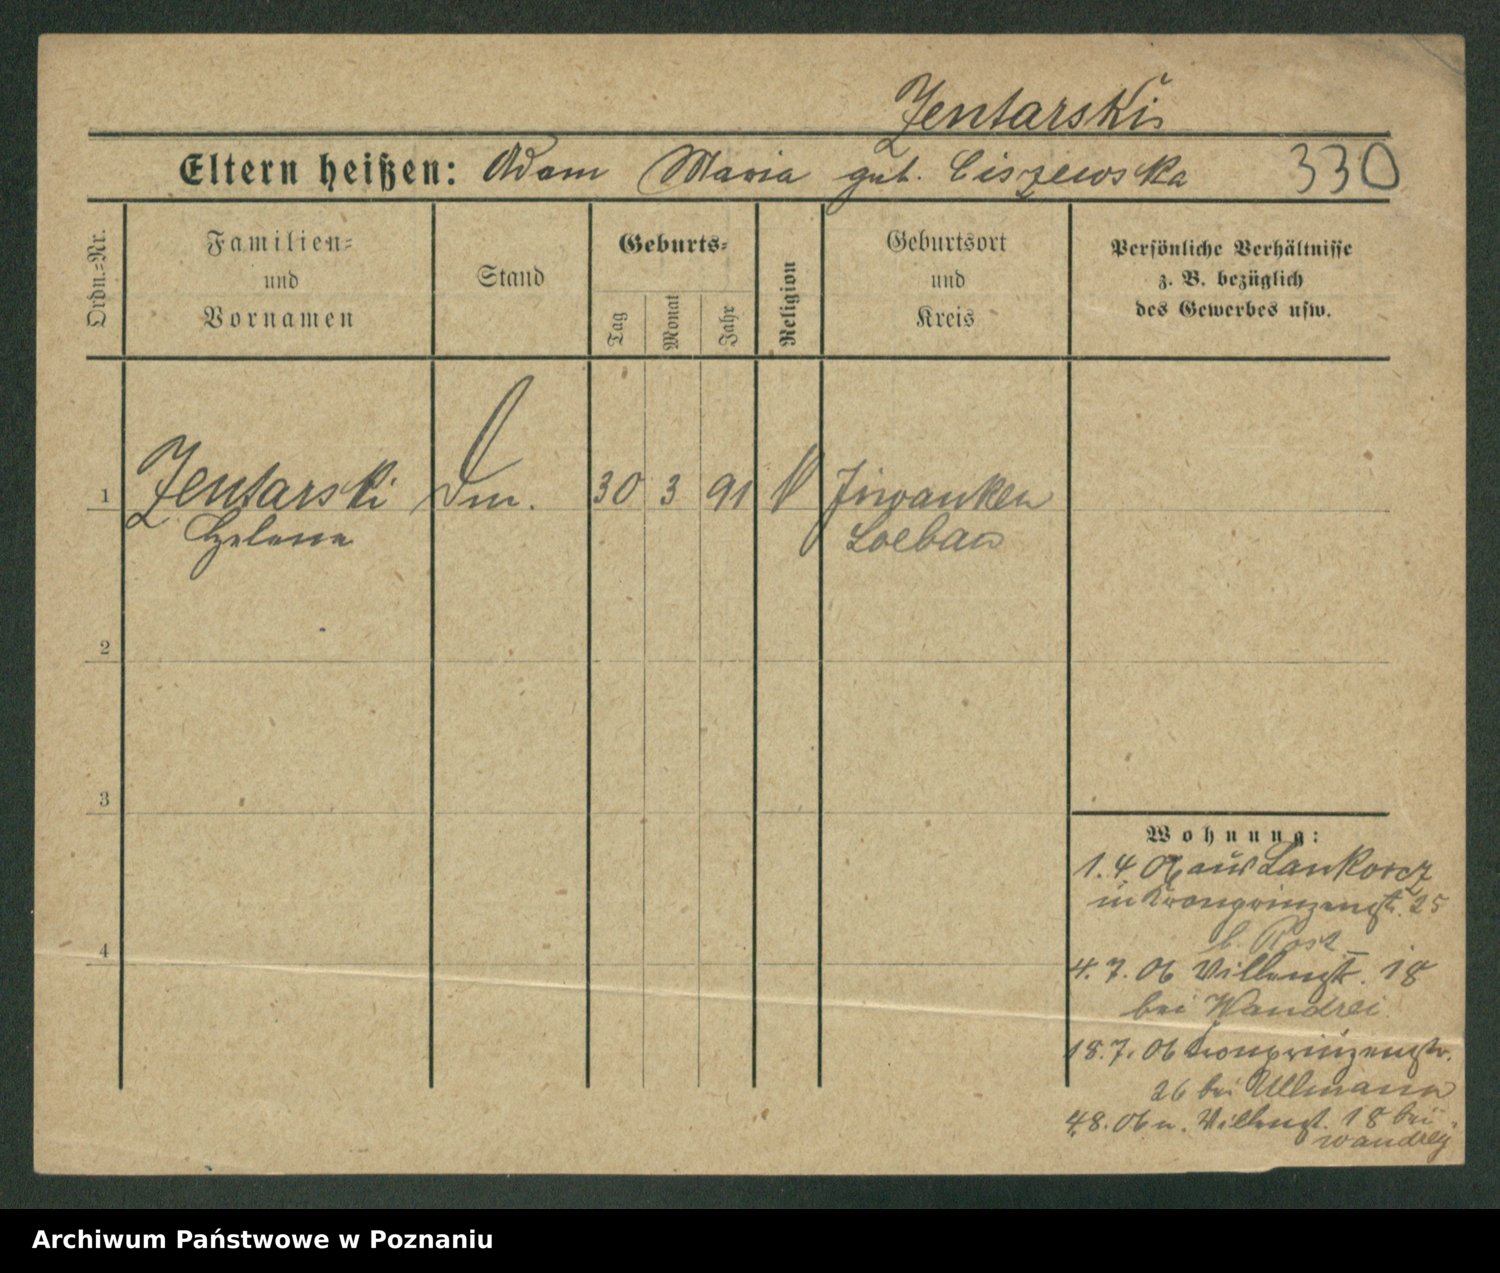 Zentarski
Eltern heißen: Adam Maria geb. Ciszewska 330
Ordn.-Nr.
Familien- und Vornamen
Stand
Geburts-
Tag
Monat
Jahr
Religion
Geburtsort und Kreis
Persönliche Verhältnisse
z. B. bezüglich
des Gewerbes usw.
1 Zentarski 30 3 91 k Jwanken
Helene Loebau
2
3
4
Wohnung:
1. 4 06 aus Lankorcz
in Kronprinzenstr. 25
b. Post
4. 7. 06 Villenstr. 18
bei Wandrei
18. 7. 06 Kronprinzenstr.
26 bei Ullmann
4 8. 06 n. Villenst. 18 bei
Wandrey
Archiwum Państwowe w Poznaniu